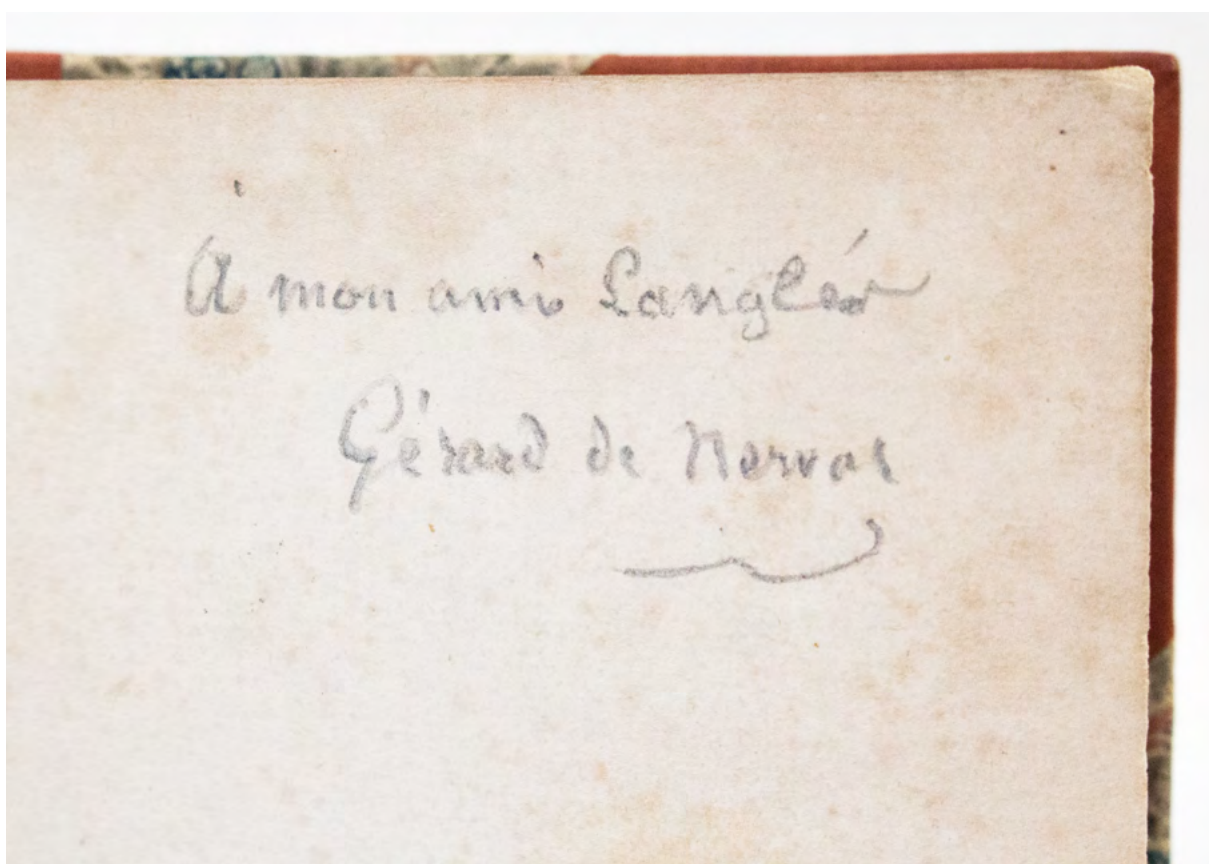 À mon ami Langlé
Gérard de Nerval